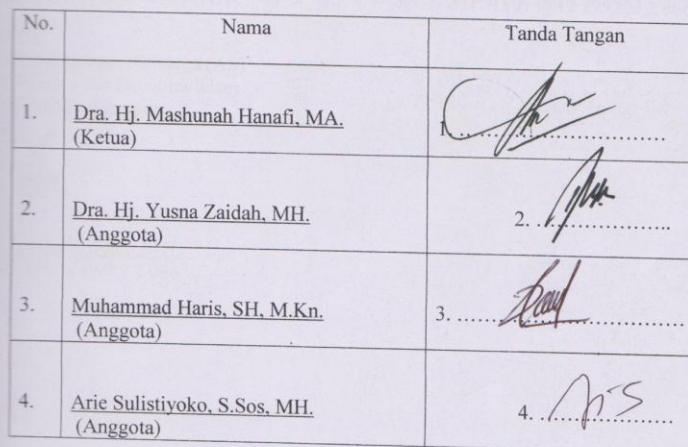 No. Nama Tanda Tangan
1. Dra. Hj. Mashunah Hanafi, MA. 1. ..............................
(Ketua)
2. Dra. Hj. Yusna Zaidah, MH. 2. ....................
(Anggota)
3. Muhammad Haris, SH, M.Kn. 3. ..............................
(Anggota)
4. Arie Sulistiyoko, S.Sos, MH. 4. ....................
(Anggota)